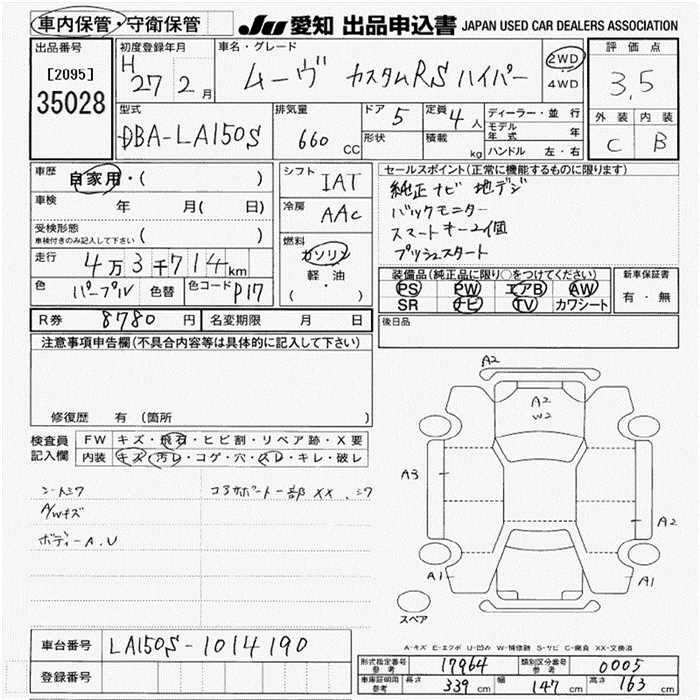 車内保管・守衛保管 JU 愛知 出品申込書 JAPAN USED CAR DEALERS ASSOCIATION
出品番号
[2095]
35028
初度登録年月
H 27 2月
車名・グレード
ムーヴ カスタムRS ハイパー
2WD
4WD
評価点
3.5
外装 内装
C B
型式
DBA-LA150S
排気量
660 CC
ドア 5
形状
定員 4人
積載 kg
ディーラー・並行
モデル年式 年
ハンドル 左・右
車歴
自家用・( )
車検 年 月( 日)
受検形態
車検付きのみ記入して下さい ( )
走行 4万3千714km
色 パープル 色替 色コード P17
シフト IAT
冷房 AAC
燃料
ガソリン
軽・油
( ・ )
セールスポイント(正常に機能するものに限ります)
純正ナビ 地デジ
バックモニター
スマートキー2個
プッシュスタート
装備品(純正品に限り○をつけてください)
PS PW エアB AW
SR ナビ TV カワシート
新車保証書
有・無
R券 8780円 名変期限 月 日
後日品
注意事項申告欄(不具合内容等は具体的に記入して下さい)
修復歴 有 (箇所 )
検査員記入欄
FW キズ・飛石・ヒビ割・リペア跡・X要
内装 キズ・汚レ・コゲ・穴・スレ・キレ・破レ
シートシワ
コアサポート一部XX、シワ
A/Wキズ
ボディーA.U
A2
A2
W2
A3
A2
A1
A1
スペア
A-キズ E-エクボ U-凹み W-補修跡 S-サビ C-腐食 XX-交換済
車台番号 LA150S-1014190
登録番号
形式指定番号 参考 17964 類別区分番号 参考 0005
車庫証明用 参考 長さ 339 cm 幅 147 cm 高さ 163 cm